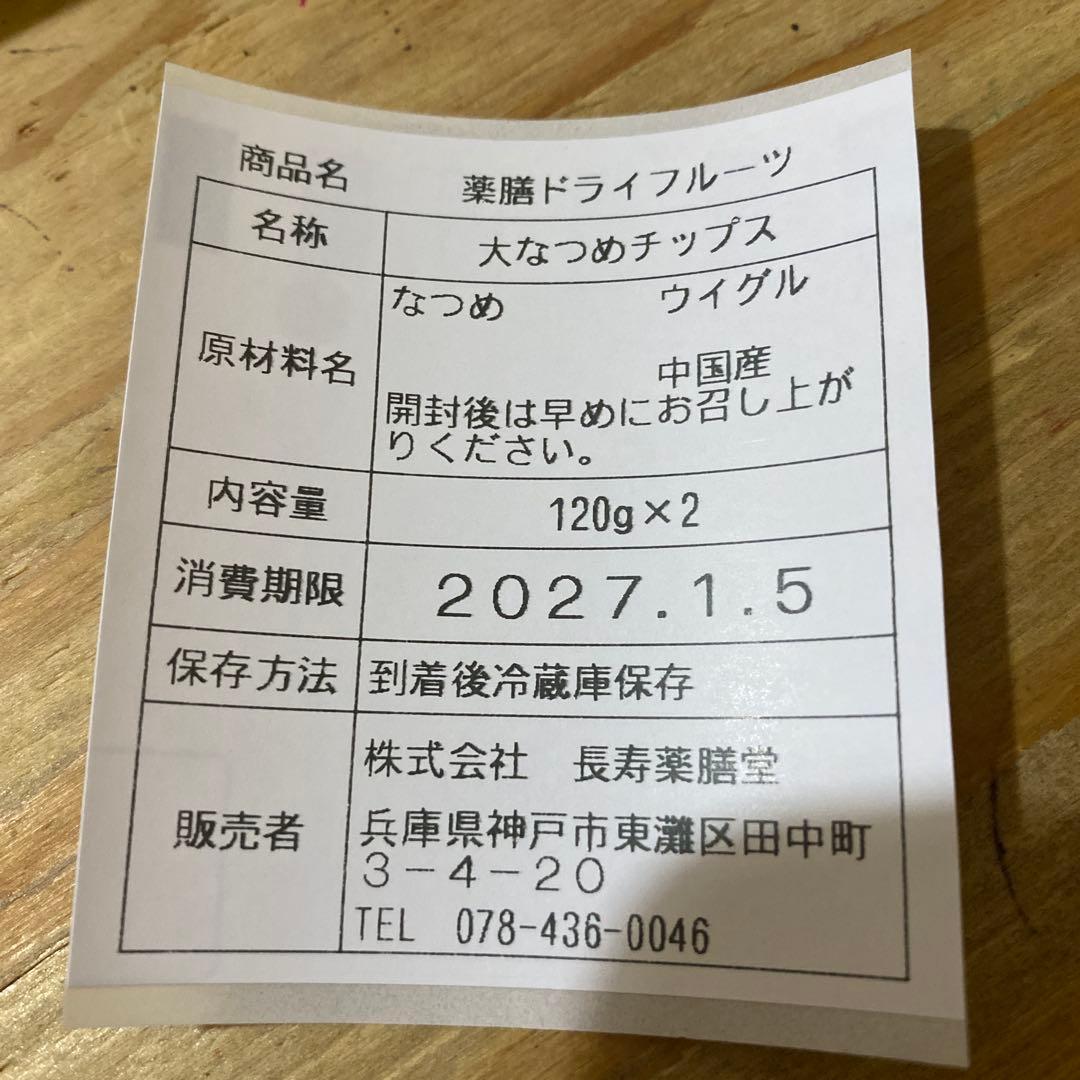 商品名 薬膳ドライフルーツ
名称 大なつめチップス
原材料名 なつめ ウイグル
中国産
開封後は早めにお召し上が
りください。
内容量 120g×2
消費期限 2027.1.5
保存方法 到着後冷蔵庫保存
販売者 株式会社 長寿薬膳堂
兵庫県神戸市東灘区田中町
3-4-20
TEL 078-436-0046